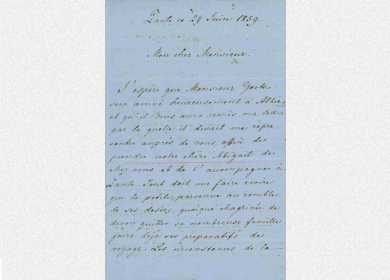 Zante ce 24 Juin 1859.
Mon cher Monsieur
J'espère que Monsieur York
sera arrivé heureusement à Athènes,
et qu'il vous aura remis ma lettre
par la quelle il devait me répre-
senter auprès de vous, affin de
prendre notre chère Abigail de
chez vous et de l'accompagner à
Zante. Tout doit me faire croire
que la petite personne au comble
de ses desirs, quoique chagrinée de
devoir quitter sa nombreuse famille
faira déjà ses preparatifs de
voyage. Les circonstances de la